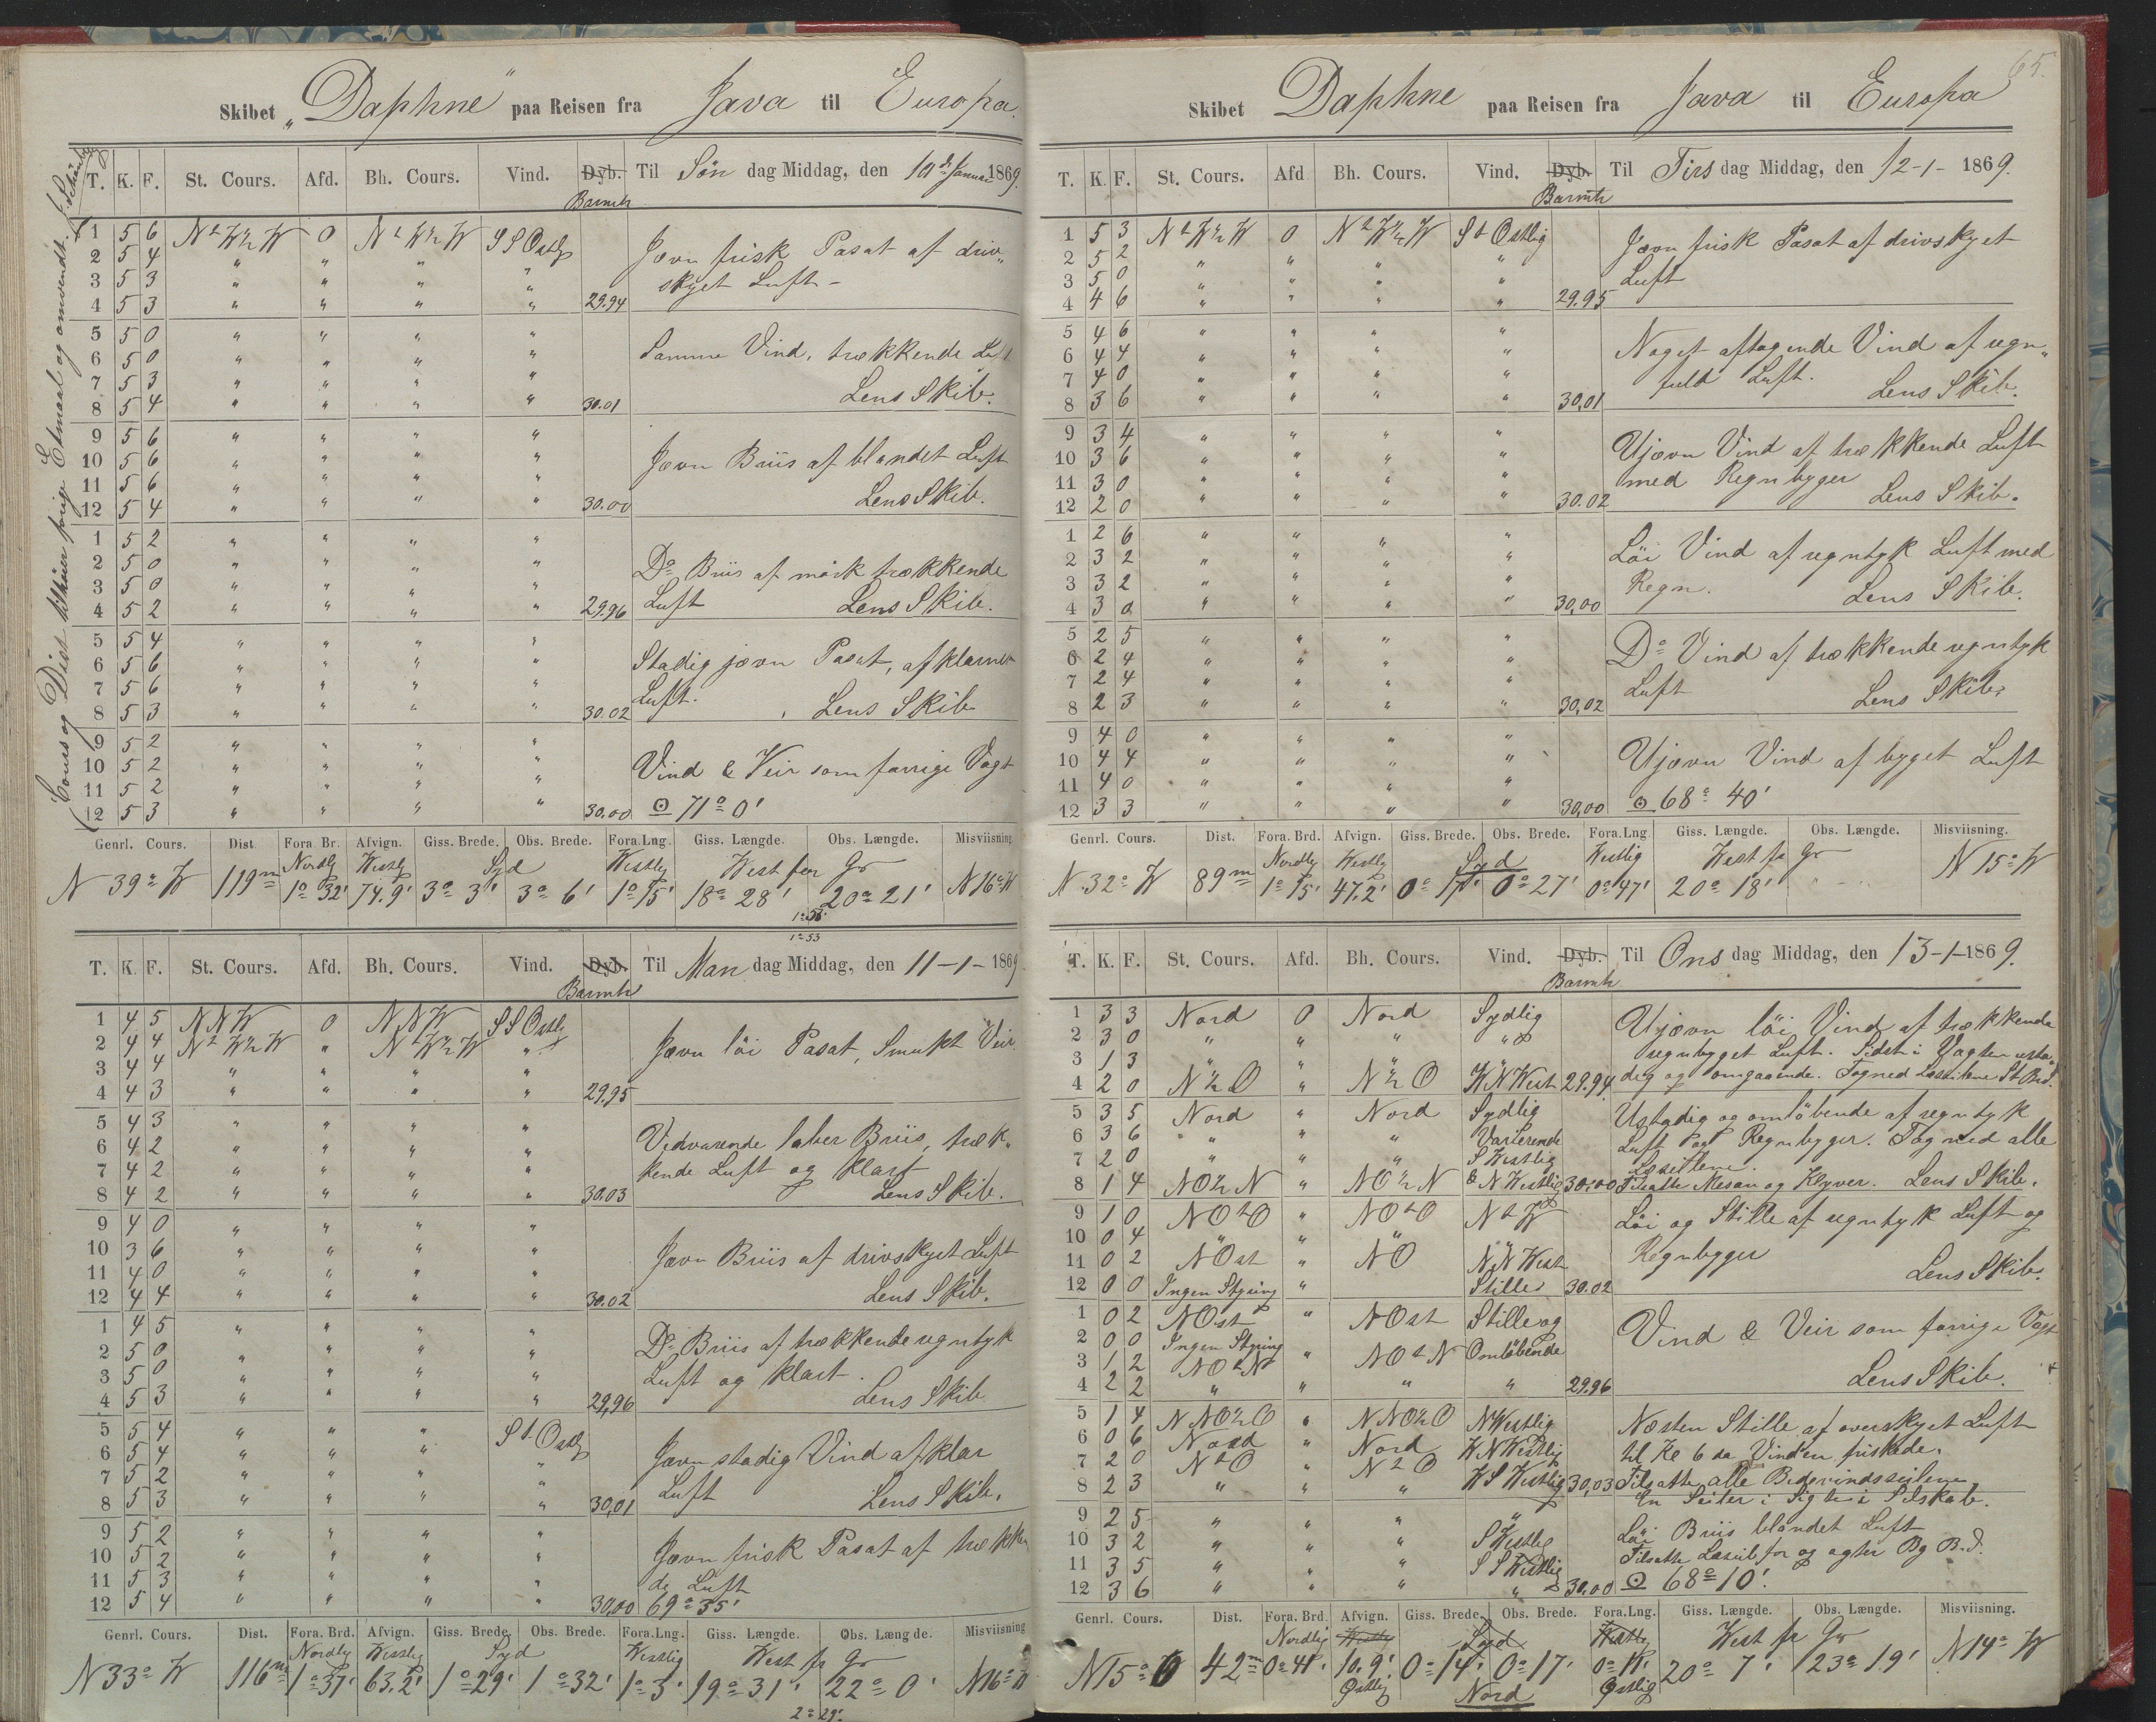 65.
Skibet „Daphne" paa Reisen fra Java til Europa.
T. K. F. St. Cours. Afd. Bh. Cours. Vind. Dyb. Til Søn dag Middag, den 10 de Januar 1869.
Barmtr
Cours og Dist tilhører forige Etmaal og omvendt.
1 5 6 N t W ½ W 0 N t W ½ W S S Ostlg Jævn frisk Pasat af driv„
2 5 4 " " " " skyet Luft –
3 5 3 " " " "
4 5 3 " " " " 29.94
5 5 0 " " " "
6 5 0 " " " " Samme Vind, trækkende Luft
7 5 3 " " " " Lens Skib.
8 5 4 " " " " 30.01
9 5 6 " " " "
10 5 6 " " " " Jævn Briis af blandet Luft
11 5 6 " " " " Lens Skib.
12 5 4 " " " " 30.00
1 5 2 " " " "
2 5 0 " " " " Do Briis af mørk trækkende
3 5 0 " " " " Luft Lens Skib.
4 5 2 " " " " 29.96
5 5 4 " " " "
6 5 6 " " " " Stadig jævn Pasat, af klarnet
7 5 6 " " " " Luft. Lens Skib
8 5 3 " " " " 30.02
9 5 2 " " " "
10 5 2 " " " " Vind & Veir som forrige Vagt
11 5 2 " " " "
12 5 3 " " " " 30.00 ⊙ 71° 0'
Genrl. Cours. Dist. Fora Br. Afvign. Giss. Brede. Obs. Brede. Fora.Lng. Giss. Længde. Obs. Længde. Misviisning.
Nordlg Westlg Syd Westlg West for Gr
N 39° W 119 m 1° 32' 74.9' 3° 3' 3° 6' 1° 15' 18° 28' 20° 21' N 16° W
1° 53
T. K. F. St. Cours. Afd. Bh. Cours. Vind. Dyb. Til Man dag Middag, den 11 – 1 – 1869
Barmtr
1 4 5 N N W 0 N N W S S Ostlg
2 4 4 N t W ½ W " N t W ½ W " Jævn löi Pasat, Smukt Veir.
3 4 4 " " " "
4 4 3 " " " " 29.95
5 4 3 " " " "
6 4 2 " " " " Vedvarende laber Briis, træk„
7 4 2 " " " " kende Luft og klart
8 4 2 " " " " 30.03 Lens Skib.
9 4 0 " " " "
10 3 6 " " " " Jævn Briis af drivskyet Luft
11 4 0 " " " "
12 4 4 " " " " 30.02 Lens Skib.
1 4 5 " " " "
2 5 0 " " " " Do Briis af trækkende regntyk
3 5 0 " " " " Luft og klart.
4 5 3 " " " " 29,96 Lens Skib
5 5 4 " " " S t Ostlg
6 5 4 " " " " Jævn stadig Vind af klar
7 5 2 " " " " Luft Lens Skib.
8 5 3 " " " " 30,01
9 5 2 " " " "
10 5 2 " " " " Jævn frisk Pasat af trækken
11 5 3 " " " " de Luft
12 5 4 " " " " 30,00 69° 35'
Genrl. Cours. Dist. Fora. Brd. Afvign. Giss. Brede. Obs. Brede. Fora.Lng. Giss. Længde. Obs. Længde. Misviisning
Nordlg Westlg Syd Westlg West fr Gr
N 33° W 116 m 1° 37' 63.2' 1° 29' 1° 32' 1° 3' 19° 31' 22° 0' N 16° W
2° 29'.
Skibet Daphne paa Reisen fra Java til Europa
T. K. F. St. Cours. Afd Bh. Cours. Vind. Dyb. Til Tirs dag Middag, den 12 – 1 – 1869.
Barmtr
1 5 3 N t W ½ W 0 N t W ½ W S t Ostlig Jævn frisk Pasat af drivskyet
2 5 2 " " " "
3 5 0 " " " " Luft
4 4 6 " " " " 29.95
5 4 6 " " " "
6 4 4 " " " " Noget aftagende Vind af regn„
7 4 0 " " " " fuld Luft. Lens Skib.
8 3 6 " " " " 30,01
9 3 4 " " " "
10 3 6 " " " " Ujævn Vind af trækkende Luft
11 3 0 " " " " med Regnbyger
12 2 0 " " " " 30.02 Lens Skib.
1 2 6 " " " "
2 3 2 " " " " Löi Vind af regntyk Luft med
3 3 2 " " " " Regn. Lens Skib.
4 3 0 " " " " 30,00
5 2 5 " " " "
6 2 4 " " " " Do Vind af trækkende regntyk
7 2 4 " " " " Luft Lens Skib.
8 2 3 " " " " 30,02
9 4 0 " " " "
10 4 4 " " " " Ujævn Vind af byget Luft
11 4 0 " " " "
12 3 3 " " " " 30,00 ⊙ 68° 40'
Genrl. Cours. Dist. Fora. Brd. Afvign. Giss. Brede. Obs. Brede. Fora.Lng. Giss. Længde. Obs. Længde. Misviisning.
Nordlg Westlg Syd Westlig West fr Gr
N 32° W 89 m 1° 15' 47.2' 0° 17' 0° 27' 0° 47' 20° 18' N 15° W
T. K. F. St. Cours. Afd. Bh. Cours. Vind. Dyb. Til Ons dag Middag, den 13 – 1 – 1869.
Barmtr
1 3 3 Nord 0 Nord Sydlig Ujævn löi Vind af trækkende
2 3 0 " " " " regnbyget Luft. Sidst i Vagten usta„
3 1 3 " " " dig og omgaaende. Tog ned Læseilene St Brd.
4 2 0 N ½ O " N ½ O W N West 29.94
5 3 5 Nord " Nord Sydlig Ustadig og omløbende af regntyk
6 3 6 " " " Varierende Luft og Regnbyger. Tog ned alle
7 2 0 " " " S Westlig Læseilene.
8 1 4 N O ½ N " N O ½ N & N Westlig 30.00 Tilsatte Mesan og Klyver. Lens Skib.
9 1 0 N O t O " N O t O N t W Löi og Stille af regntyk Luft og
10 0 4 " " " " Regnbyger
11 0 2 N Ost " N O N N West
12 0 0 Ingen Styring " Stille 30.02 Lens Skib.
1 0 2 N Ost " N Ost Stille og
2 0 0 Ingen Styring Vind & Veir som forrige Vagt
3 1 2 N O t N " N O t N Omløbende
4 2 2 " " " " 29.96 Lens Skib.
5 1 4 N N O ½ O " N N O ½ O N Westlig Næsten Stille af overskyet Luft
6 0 6 Nord " Nord W N Westlig til Kl 6 da Vinden friskede.
7 2 0 N t O " N t O
8 2 3 " " " W S Westlig 30,03 Tilsatte alle Bidevindsseilene
En Seiler i Sigte i Selskab.
9 2 5 " " " "
10 3 2 " " " S Westlig Löi Briis blandet Luft
11 3 5 " " " S S Westlig Tilsatte Læseil for og agter Bg B.d.
12 3 6 " " " " 30.00 ⊙ 68° 10'.
Genrl. Cours. Dist. Fora. Brd. Afvign. Giss. Brede. Obs. Brede. Fora.Lng. Giss. Længde. Obs. Længde. Misviisning.
Nordlig Westlg Syd Westlg West fr Gr
N 15° O 42 m 0° 41' 10.9' 0° 14' 0° 17' 0° 11' 20° 7' 23° 19' N 14° W
Østlig Nord Østlig